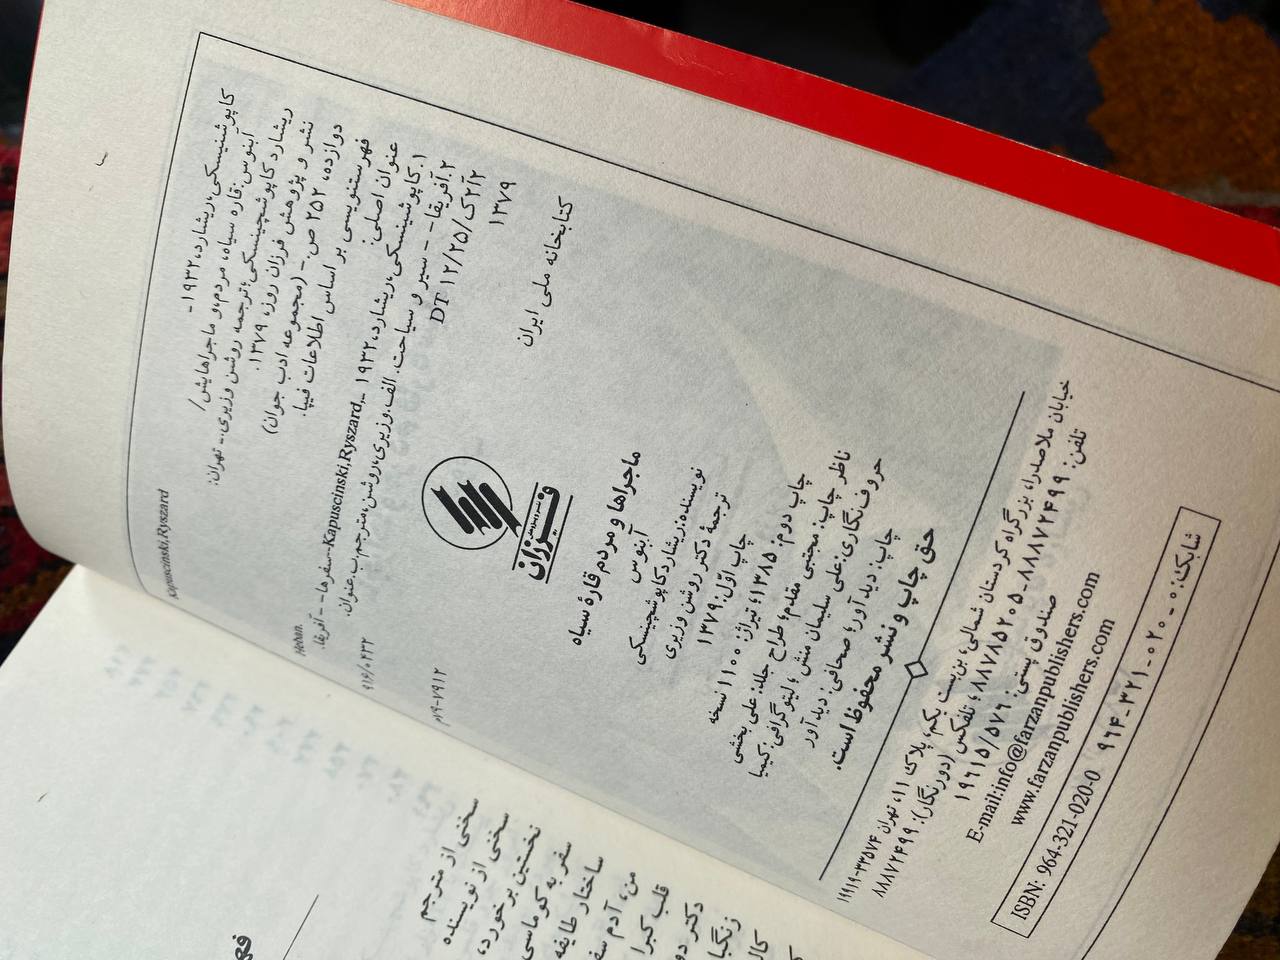 کاپوشینسکی، ریشارد، ۱۹۳۲-
Kapuscinski,Ryszard
آبنوس: قاره سیاه، مردم، و ماجراهایش/
ریشارد کاپوشچینسکی؛ ترجمه روشن وزیری. - تهران:
نشر و پژوهش فرزان روز، ۱۳۷۹.
دوازده، ۲۵۲ ص. - (مجموعه ادب جوان)
فهرستنویسی بر اساس اطلاعات فیپا.
عنوان اصلی: Heban.
۱. کاپوشینسکی، ریشارد، ۱۹۳۲ - Kapuscinski,Ryszard -- سفرها -- آفریقا.
۲. آفریقا -- سیر و سیاحت. الف. وزیری، روشن، مترجم. ب. عنوان.
۲آ۲ک/۱۲/۲۵ DT ۹۱۶/۰۴۳۲
۱۳۷۹
کتابخانه ملی ایران ۷۹۱۲-۷۹م
فرزان
ماجراها و مردم قارهٔ سیاه
آبنوس
نویسنده: ریشارد کاپوشچینسکی
ترجمهٔ دکتر روشن وزیری
چاپ اوّل: ۱۳۷۹
چاپ دوم: ۱۳۸۵؛ تیراژ: ۱۱۰۰ نسخه
ناظر چاپ: مجتبی مقدم؛ طراح جلد: علی بخشی
حروف‌نگاری: علی سلیمان منش؛ لیتوگرافی: کیمیا
چاپ: دیدآور؛ صحافی: دیدآور
حق چاپ و نشر محفوظ است.
خیابان ملاصدرا، بزرگراه کردستان شمالی، بن‌بست یکم، پلاک ۱۱، تهران ۳۳۵۷۴-۱۹۹۱۹
تلفن: ۸۸۸۷۲۴۹۹-۸۸۷۸۵۲۰۵؛ تلفکس (دورنگار): ۸۸۸۷۲۴۹۹
صندوق پستی: ۱۹۶۱۵/۵۷۶
E-mail:info@farzanpublishers.com
www.farzanpublishers.com
شابک: ۰-۰۲۰-۳۲۱-۹۶۴ ISBN: 964-321-020-0
سخنی از مترجم
سخنی از نویسنده
نخستین برخورد،
سفر به کوماسی
ساختار طایفه
من، آدم سف
قلب کبرا
دکتر دو
زنگبا
کال